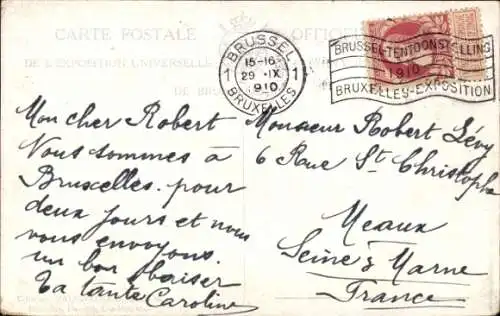 CARTE POSTALE OFFICIEL
DE L'EXPOSITION UNIVERSELLE
DE BRU
BRUSSEL
15-16
1 29 IX 1
910
BRUXELLES
BRUSSEL-TENTOONSTELLING
1910
BRUXELLES-EXPOSITION
Mon cher Robert
Nous sommes à
Bruxelles pour
deux jours et nous
vous envoyons
un bon baiser
Ta tante Caroline
Monsieur Robert Lévy
6 Rue St Christophe
Meaux
Seine & Marne
France